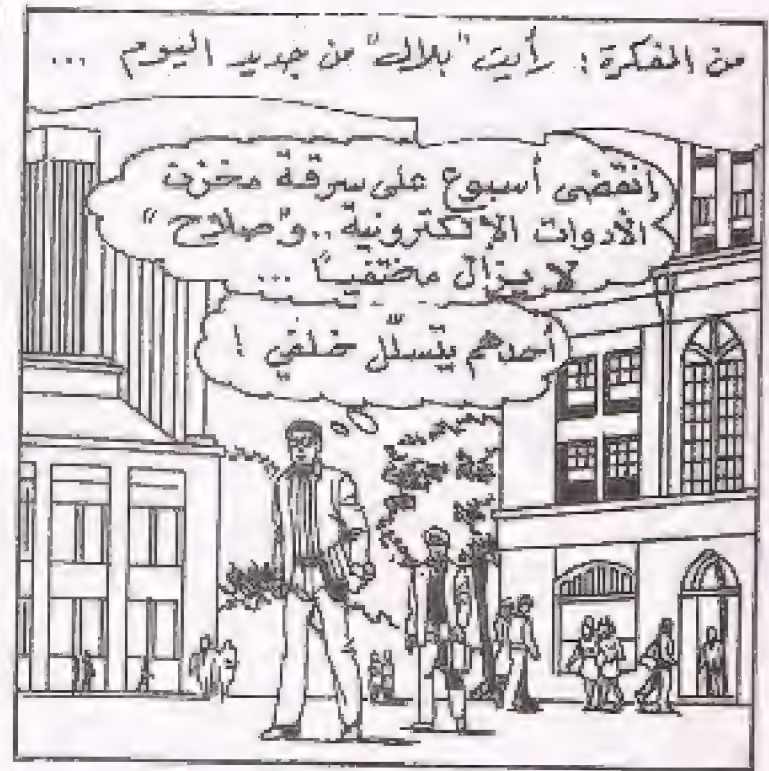 من المفكرة : رأيت "بلال" من جديد اليوم ...
إنقضى أسبوع على سرقة مخزن
الأدوات الإلكترونية .. و"صلاح"
لا يزال مختفياً ...
أحدهم يتسلّل خلفي !